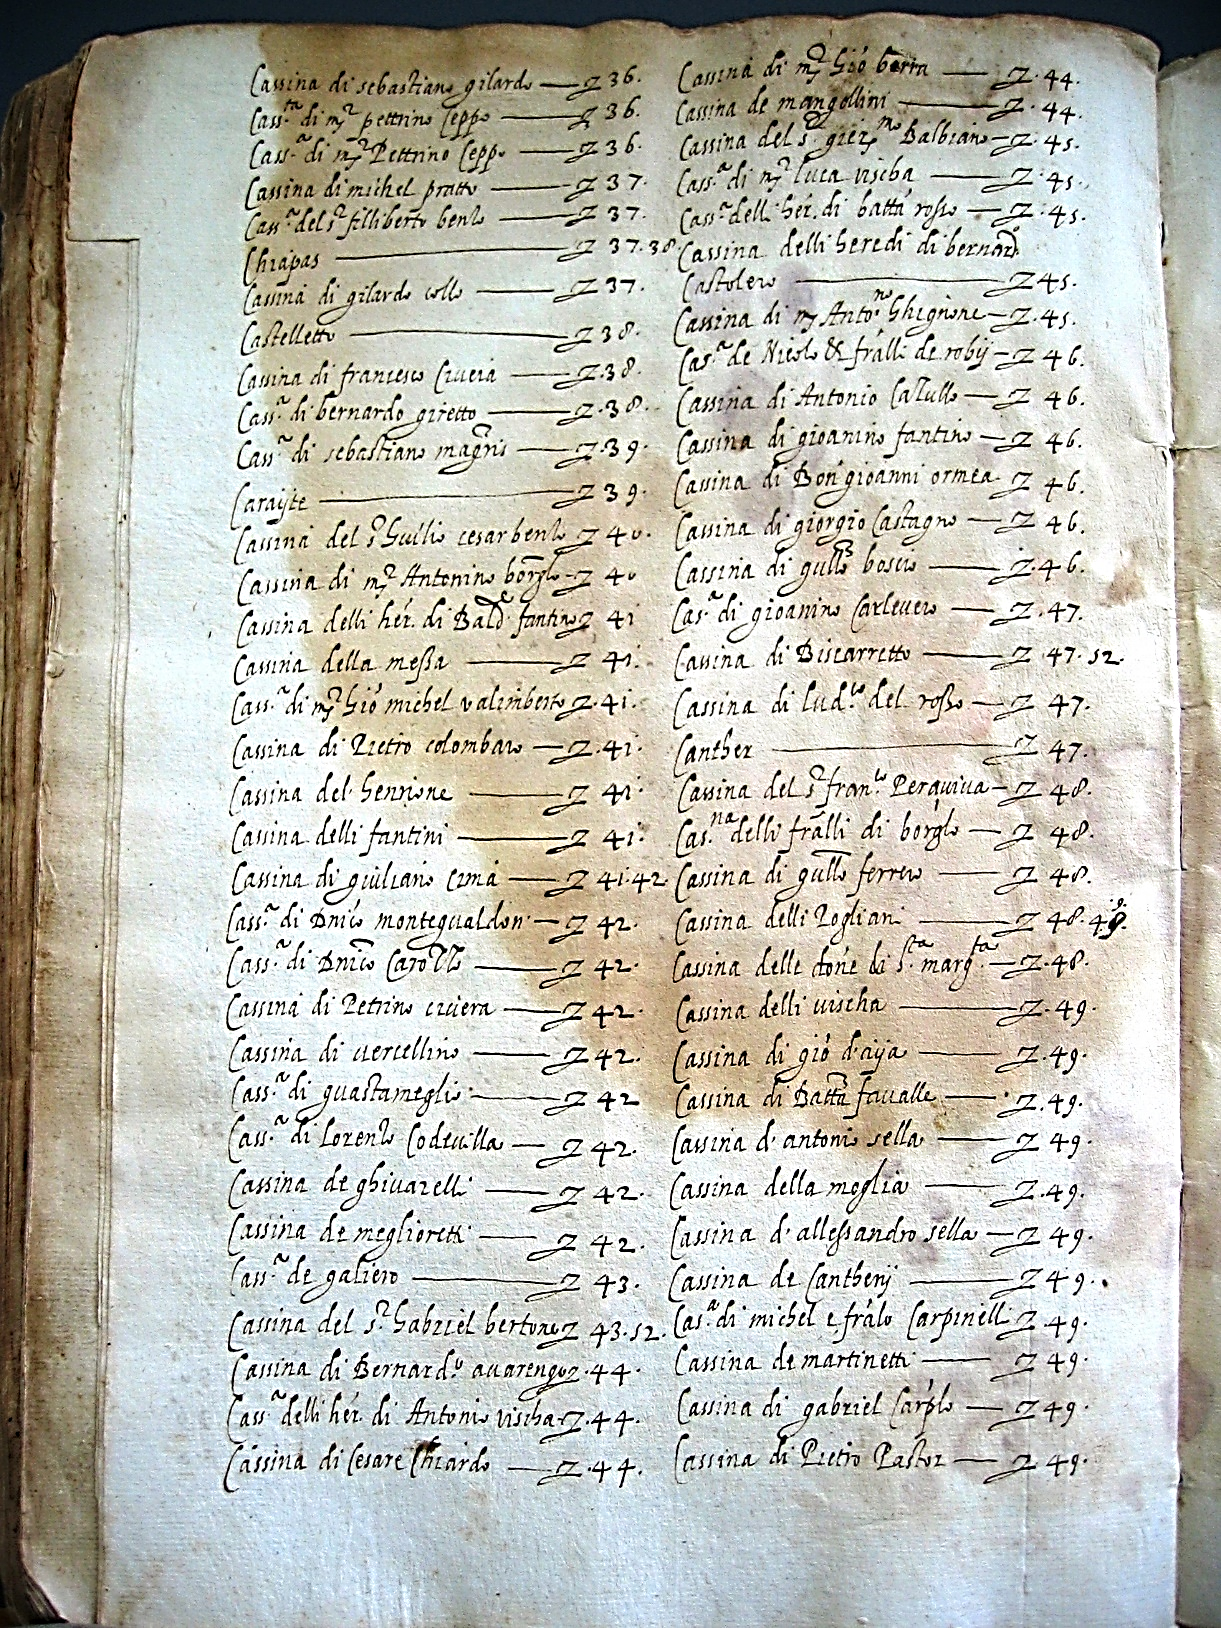 Cassina di sebastiano gilardo — 36.
Cass.ta di mr pettrino Ceppo — 36.
Cass.a di mr Pettrino Ceppo — 36.
Cassina di michel pratto — 37.
Cass.a del sr filliberto benso — 37.
Chiapas — 37.38.
Cassina di gilardo collo — 37.
Castelletto — 38.
Cassina di francesco Civera — 38.
Cass.a di bernardo giretto — 38.
Cass.a di sebastiano magnis — 39.
Carayte — 39.
Cassina del sr cesar benso 40.
Cassina di mr Antonino borglo — 40
Cassina delli her. di Bald.e fantino 41
Cassina della messa — 41.
Cass.a di mr Gio michel valimberto 41.
Cassina di Pietro colombaro — 41.
Cassina del henrione — 41.
Cassina delli fantini — 41.
Cassina di giuliano Cima — 41.42.
Cass.a di Dnico — 42.
Cass.a di Dnico — 42.
Cassina di Petrino civera — 42.
Cassina di vercellino — 42.
Cass.a di guastameglio — 42
Cass.a di Lorenzo Codevilla — 42.
Cassina de ghivarelli — 42.
Cassina de meglioretti — 42.
Cass.a de galiero — 43.
Cassina del sr. Gabriel bertone 43.52.
Cassina di Bernardo avarengo 44.
Cass.a delli her. di Antonio vischa 44.
Cassina di Cesare Chiardo — 44.
Cassina di mr Gio berra — 44.
Cassina de mangollini — 44.
Cassina del sr Balbiano — 45.
Cass.a di mr luca vischa — 45.
Cass.a delli her. di batta rosso — 45.
Cassina delli heredi di bernardo
Castolero — 45.
Cassina di mr Anto.no Ghignone — 45.
Cas.a de Nicolo & fralli de robij — 46.
Cassina di Antonio Cazullo — 46.
Cassina di gioanino fantino — 46.
Cassina di Bongioanni ormea 46.
Cassina di giorgio Castagno — 46.
Cassina di gullo boscio — 46.
Cas.a di gioanino Carlevero — 47.
Cassina di Biscarretto — 47.52.
Cassina di lud.co del rosso — 47.
Canther — 47.
Cassina del sr fran.co Perquiva — 48.
Cas.na delli fralli di borglo — 48.
Cassina di gullo ferrero — 48.
Cassina delli Rogliani — 48.49.
Cassina delle done di s.ta marg.ta — 48.
Cassina delli vischa — 49.
Cassina di gio — 49.
Cassina di Batta favalle — 49.
Cassina d'antonio sella — 49.
Cassina della moglia — 49.
Cassina d'allessandro sella — 49.
Cassina de Cantherij — 49.
Cas.a di michel e fralo Carpinelli 49.
Cassina de martinetti — 49.
Cassina di gabriel Carplo — 49.
Cassina di Pietro Pastor — 49.